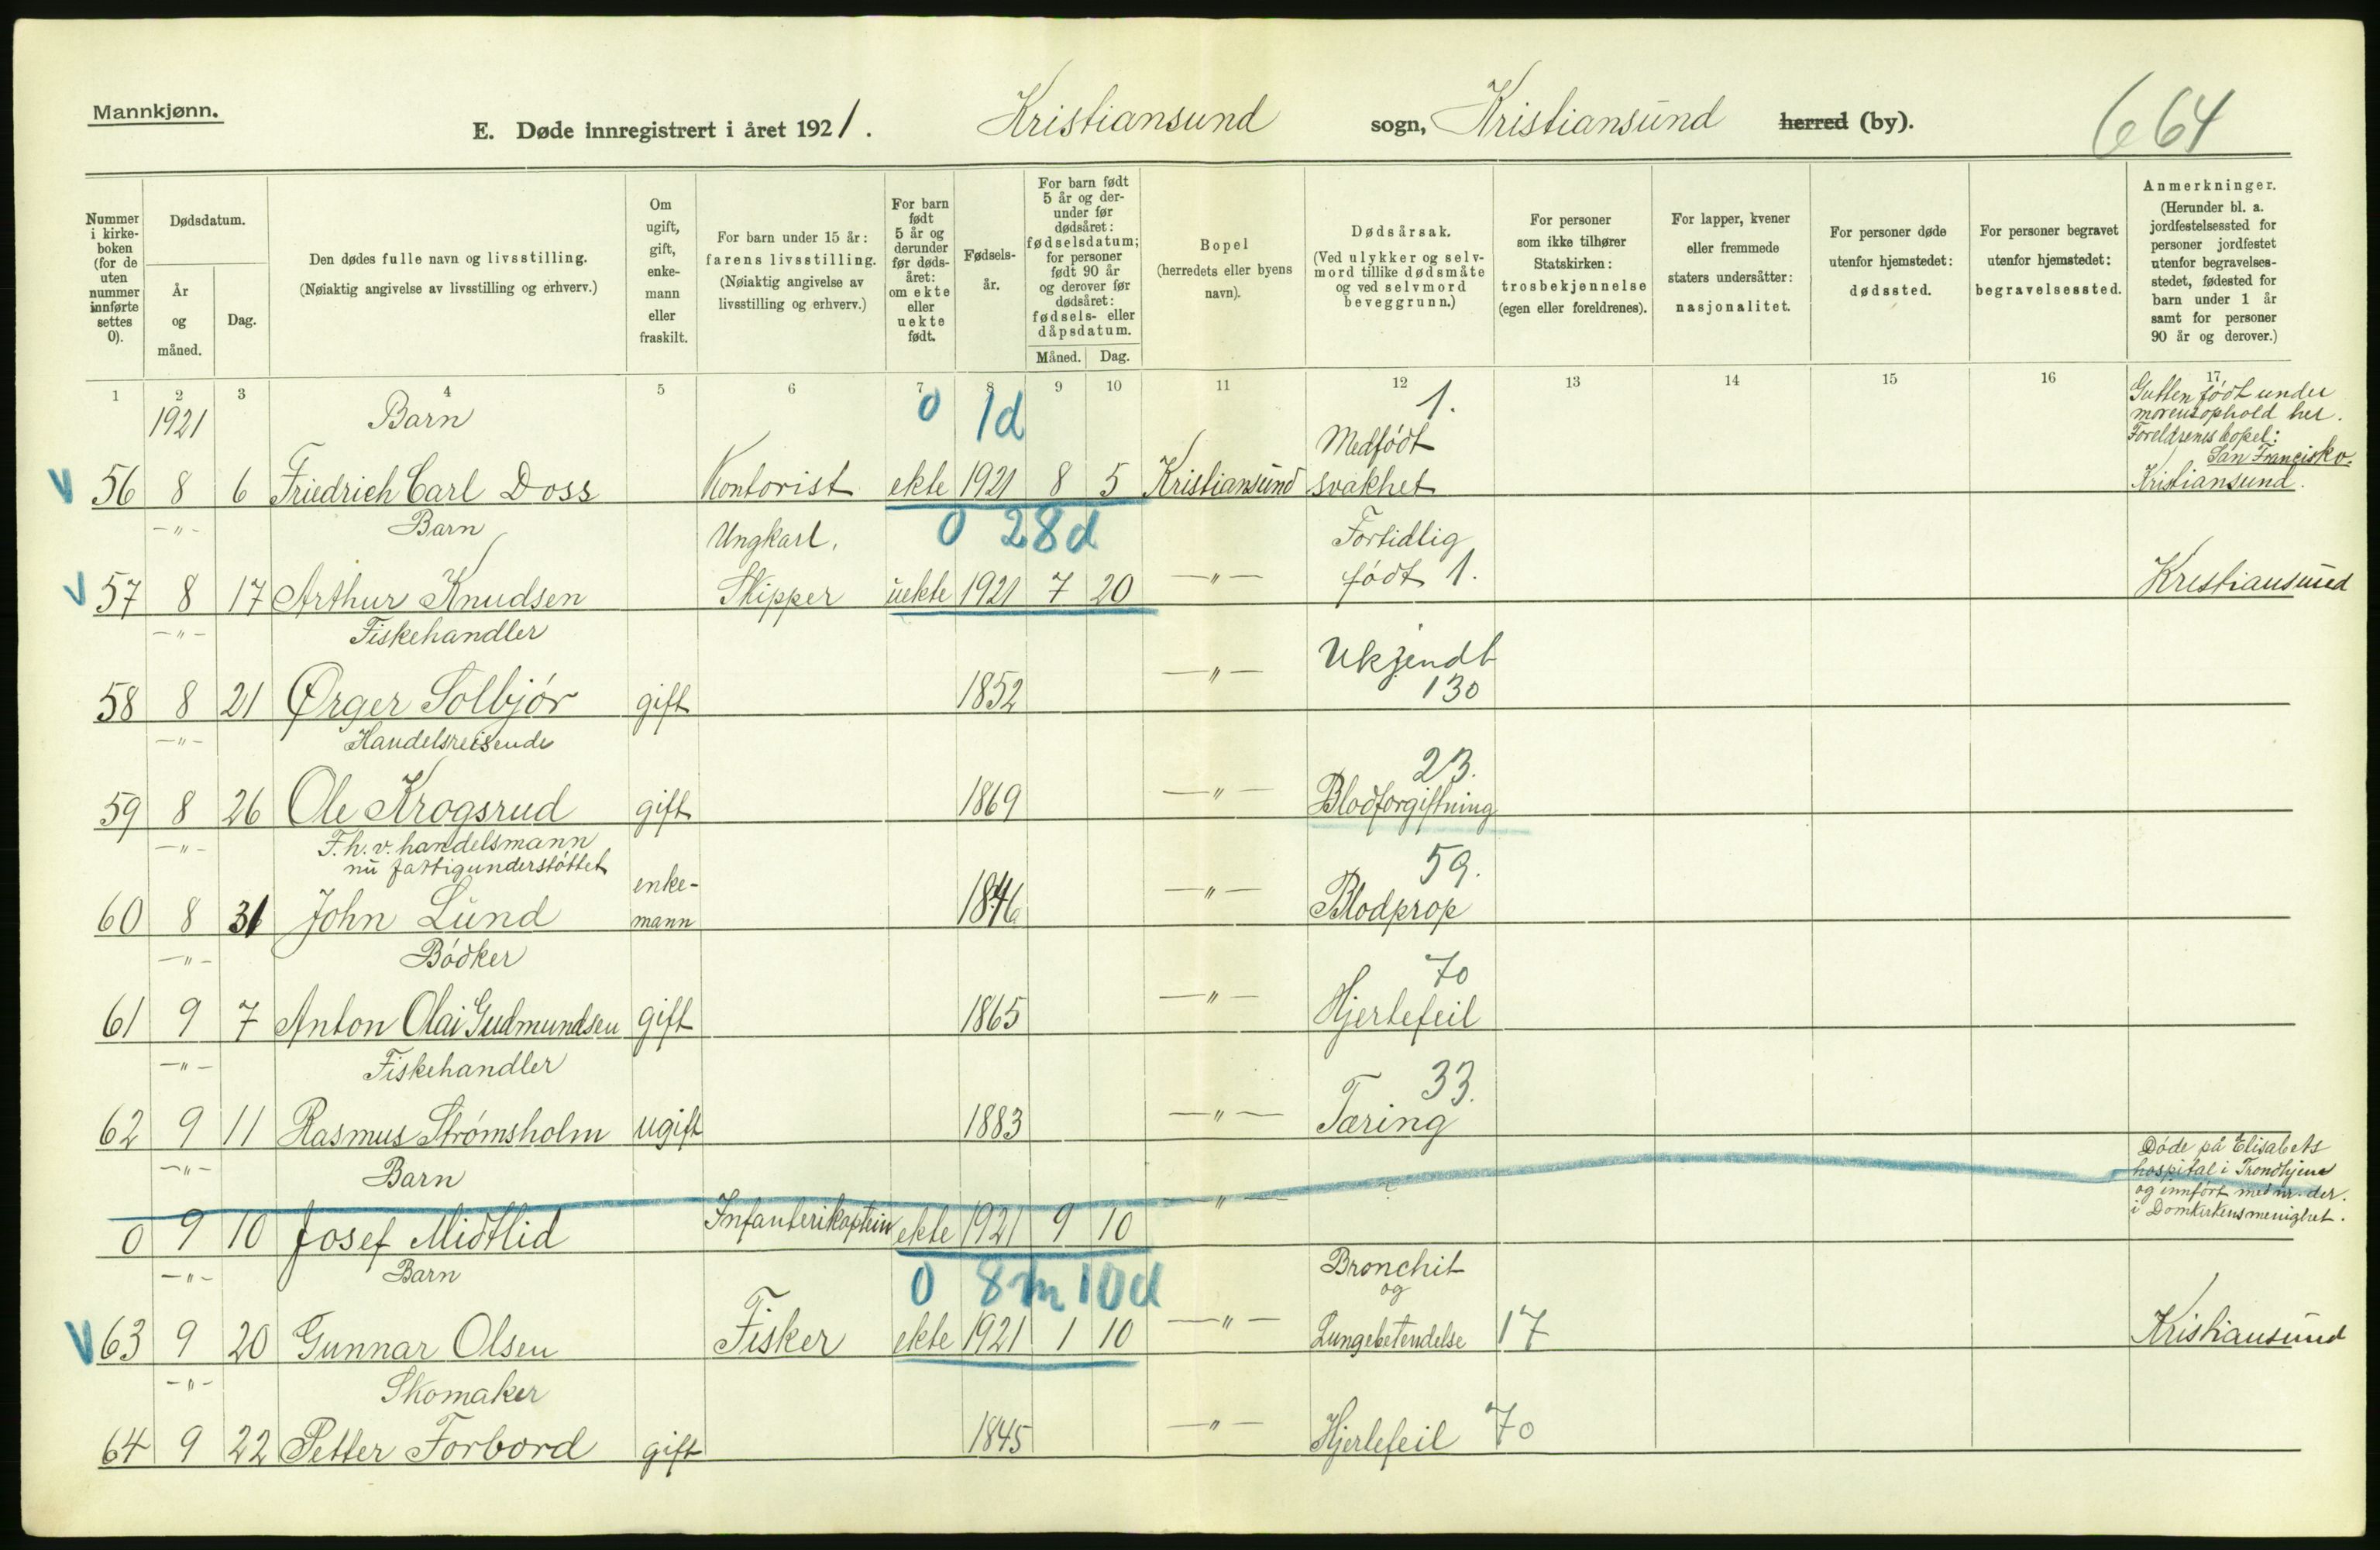 Mannkjønn.
E. Døde innregistrert i året 1921. Kristiansund sogn, Kristiansund herred (by).
664
Nummer i kirke-boken (for de uten nummer innførte settes 0).
Dødsdatum.
År og måned.
Dag.
Den dødes fulle navn og livsstilling.
(Nøiaktig angivelse av livsstilling og erhverv.)
Om ugift, gift, enke-mann eller fraskilt.
For barn under 15 år: farens livsstilling.
(Nøiaktig angivelse av livsstilling og erhverv.)
For barn født 5 år og derunder før døds-året: om ekte eller uekte født.
Fødsels-år.
For barn født 5 år og der-under før dødsåret: fødselsdatum; for personer født 90 år og derover før dødsåret: fødsels- eller dåpsdatum.
Måned. Dag.
Bopel
(herredets eller byens navn).
Dødsårsak.
(Ved ulykker og selv-mord tillike dødsmåte og ved selvmord beveggrunn.)
For personer som ikke tilhører Statskirken: trosbekjennelse (egen eller foreldrenes).
For lapper, kvener eller fremmede staters undersåtter: nasjonalitet.
For personer døde utenfor hjemstedet: dødssted.
For personer begravet utenfor hjemstedet: begravelsessted.
Anmerkninger.
(Herunder bl. a. jordfestelsessted for personer jordfestet utenfor begravelses-stedet, fødested for barn under 1 år samt for personer 90 år og derover.)
1 2 3 4 5 6 7 8 9 10 11 12 13 14 15 16 17
1921 Barn 0 1d 1.
Gutten født under
morens ophold her.
Foreldrenes bopel:
San Francisko.
Medfødt
V 56 8 6 Friedrich Carl Doss Kontorist ekte 1921 8 5 Kristiansund svakhet Kristiansund.
—"— Barn Ungkarl, 0 28d Fortidlig
V 57 8 17 Arthur Knudsen Skipper uekte 1921 7 20 —"— født 1. Kristiansund
—"— Fiskehandler
Ukjendt
58 8 21 Ørger Solbjør gift 1852 —"— 130
—"— Handelsreisende
23.
59 8 26 Ole Krogsrud gift 1869 —"— Blodforgiftning
—"— F. h. v. handelsmann
nu fattigunderstøttet
59.
60 8 31 John Lund enke-mann 1846 —"— Blodprop
—"— Bødker
70
61 9 7 Anton Olai Gudmundsen gift 1865 —"— Hjertefeil
—"— Fiskehandler
33.
62 9 11 Rasmus Strømsholm ugift 1883 —"— Tæring
—"— Barn
Døde på Elisabets
hospital i Trondhjem
og innført med nr. der.
i Domkirkens menighet.
0 9 10 Josef Midtlid Infanterikaptein ekte 1921 9 10 —"—
—"— Barn 0 8m 10d Bronchit
og
V 63 9 20 Gunnar Olsen Fisker ekte 1921 1 10 —"— Lungebetendelse 17 Kristiansund
—"— Skomaker
64 9 22 Petter Forbord gift 1845 —"— Hjertefeil 70